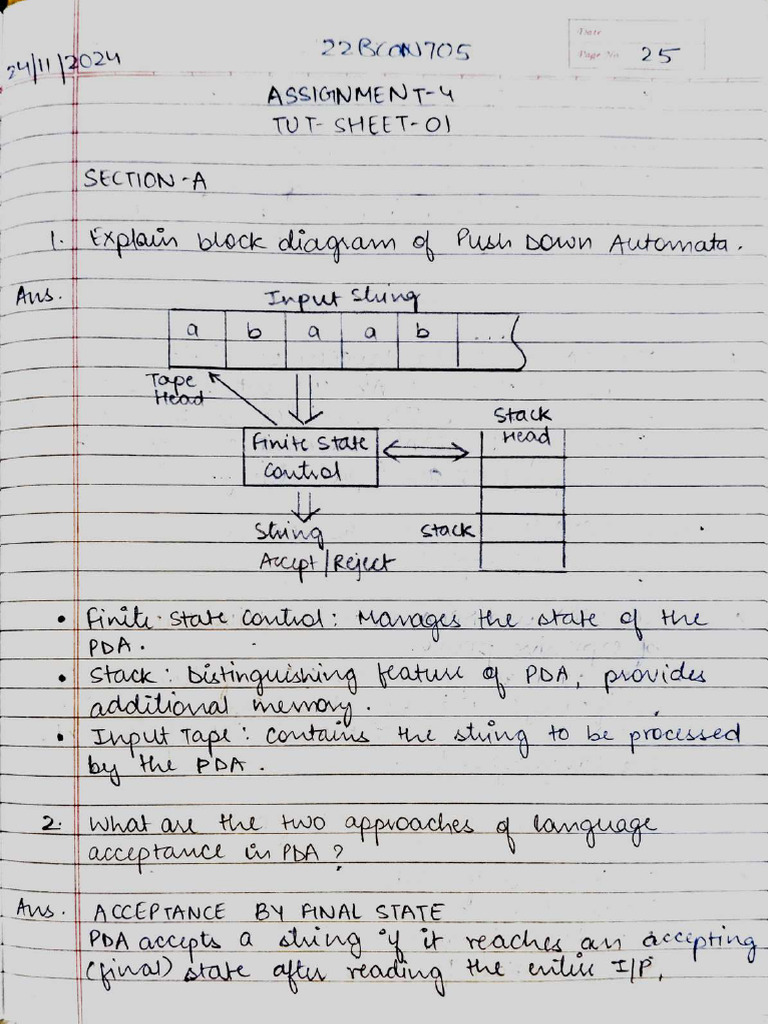 24/11/2024
22BCON705
Date
Page No. 25
ASSIGNMENT-4
TUT-SHEET-01
SECTION-A
1. Explain block diagram of Push Down Automata.
Ans.
Input String
a b a a b ....
Tape
Head
Stack
Head
Finite State
Control
String
Accept/Reject
Stack
• Finite State Control: Manages the state of the
PDA.
• Stack: Distinguishing feature of PDA, provides
additional memory.
• Input Tape: Contains the string to be processed
by the PDA.
2. What are the two approaches of language
acceptance in PDA?
Ans. ACCEPTANCE BY FINAL STATE
PDA accepts a string if it reaches an accepting
(final) state after reading the entire I/P,